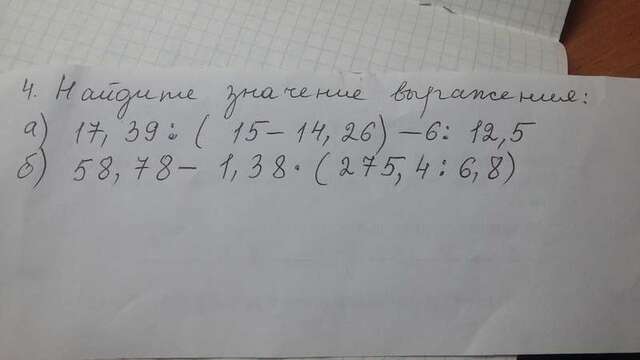 4. Найдите значение выражения:
а) 17,39:(15-14,26)-6:12,5
б) 58,78-1,38·(275,4:6,8)